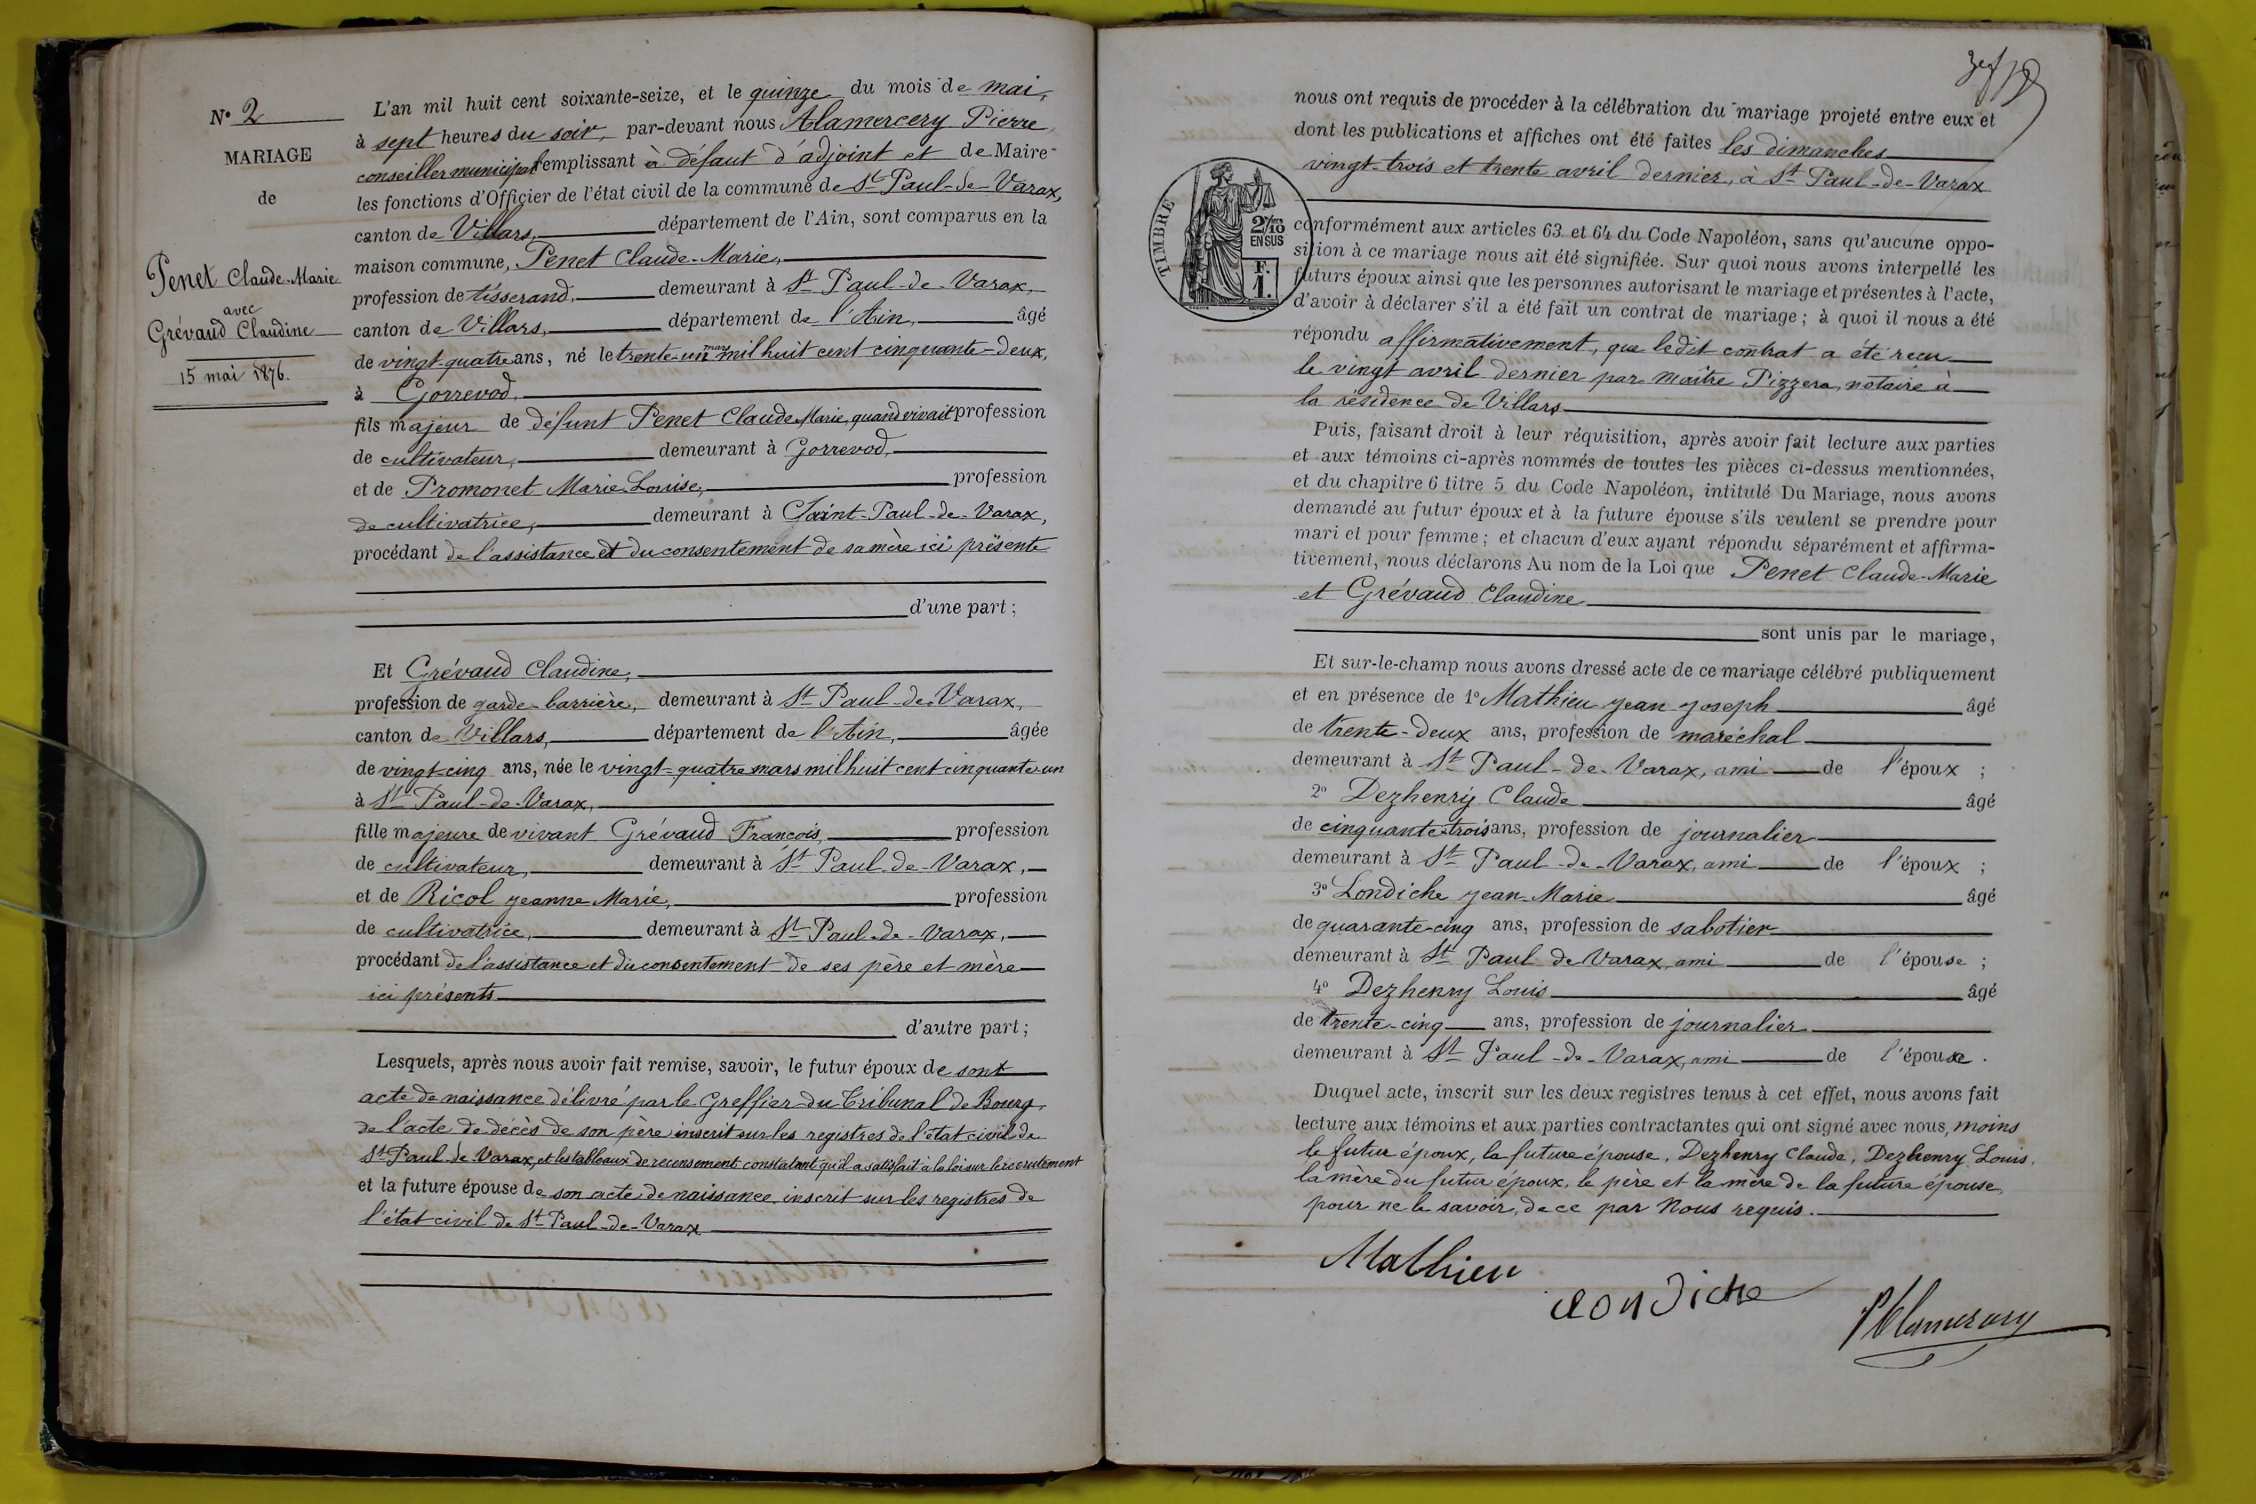 N° 2
MARIAGE
de
Penet Claude-Marie
avec
Grévaud Claudine
15 mai 1876.
L'an mil huit cent soixante-seize, et le quinze du mois de mai,
à sept heures du soir, par-devant nous Alamercery Pierre,
conseiller municipal remplissant à défaut d'adjoint et de Maire
les fonctions d'Officier de l'état civil de la commune de St Paul-de-Varax,
canton de Villars, département de l'Ain, sont comparus en la
maison commune, Penet Claude-Marie,
profession de tisserand, demeurant à St Paul-de-Varax,
canton de Villars, département de l'Ain, âgé
de vingt-quatre ans, né le trente-un mars mil huit cent cinquante-deux,
à Gorrevod,
fils majeur de défunt Penet Claude Marie, quand vivait profession
de cultivateur, demeurant à Gorrevod,
et de Promonet Marie-Louise, profession
de cultivatrice, demeurant à Saint-Paul-de-Varax,
procédant de l'assistance et du consentement de sa mère ici présente
d'une part ;
Et Grévaud Claudine,
profession de garde-barrière, demeurant à St Paul-de-Varax,
canton de Villars, département de l'Ain, âgée
de vingt-cinq ans, née le vingt-quatre mars mil huit cent cinquante-un
à St Paul-de-Varax,
fille majeure de vivant Grévaud François, profession
de cultivateur, demeurant à St Paul-de-Varax,
et de Ricol Jeanne Marie, profession
de cultivatrice, demeurant à St Paul-de-Varax,
procédant de l'assistance et du consentement de ses père et mère
ici présents
d'autre part ;
Lesquels, après nous avoir fait remise, savoir, le futur époux de sont
acte de naissance délivré par le Greffier du Tribunal de Bourg,
de l'acte de décès de son père inscrit sur les registres de l'état civil de
St Paul-de-Varax, et les tableaux de recensement constatant qu'il a satisfait à la loi sur le recrutement
et la future épouse de son acte de naissance inscrit sur les registres de
l'état civil de St Paul-de-Varax
nous ont requis de procéder à la célébration du mariage projeté entre eux et
dont les publications et affiches ont été faites les dimanches
vingt-trois et trente avril dernier, à St Paul-de-Varax
TIMBRE
2/10 EN SUS
F. 1.
conformément aux articles 63 et 64 du Code Napoléon, sans qu'aucune oppo-
sition à ce mariage nous ait été signifiée. Sur quoi nous avons interpellé les
futurs époux ainsi que les personnes autorisant le mariage et présentes à l'acte,
d'avoir à déclarer s'il a été fait un contrat de mariage ; à quoi il nous a été
répondu affirmativement, que ledit contrat a été reçu
le vingt avril dernier par maître Pizzera, notaire à
la résidence de Villars
Puis, faisant droit à leur réquisition, après avoir fait lecture aux parties
et aux témoins ci-après nommés de toutes les pièces ci-dessus mentionnées,
et du chapitre 6 titre 5 du Code Napoléon, intitulé Du Mariage, nous avons
demandé au futur époux et à la future épouse s'ils veulent se prendre pour
mari et pour femme ; et chacun d'eux ayant répondu séparément et affirma-
tivement, nous déclarons Au nom de la Loi que Penet Claude-Marie
et Grévaud Claudine
sont unis par le mariage,
Et sur-le-champ nous avons dressé acte de ce mariage célébré publiquement
et en présence de 1° Mathieu Jean Joseph âgé
de trente-deux ans, profession de maréchal
demeurant à St Paul-de-Varax, ami de l'époux ;
2° Dezhenry Claude âgé
de cinquante-trois ans, profession de journalier
demeurant à St Paul-de-Varax, ami de l'époux ;
3° Londiche Jean-Marie âgé
de quarante-cinq ans, profession de sabotier
demeurant à St Paul de Varax, ami de l'épouse ;
4° Dezhenry Louis âgé
de trente-cinq ans, profession de journalier
demeurant à St Paul-de-Varax, ami de l'épouse.
Duquel acte, inscrit sur les deux registres tenus à cet effet, nous avons fait
lecture aux témoins et aux parties contractantes qui ont signé avec nous, moins
le futur époux, la future épouse, Dezhenry Claude, Dezhenry Louis,
la mère du futur époux, le père et la mère de la future épouse,
pour ne le savoir, de ce par Nous requis.
Mathieu
Londiche
P Alamercery